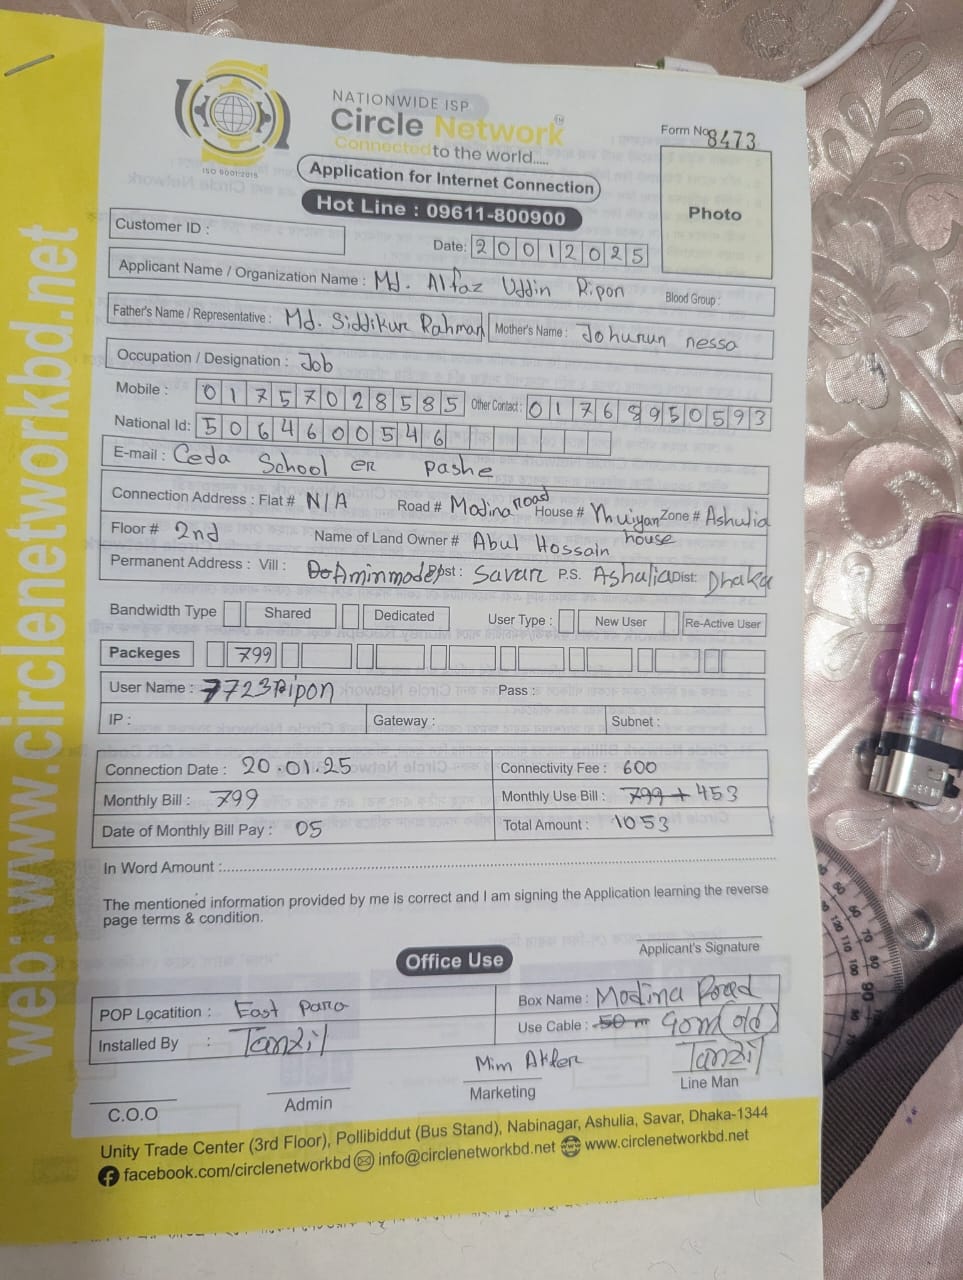 NATIONWIDE ISP
Circle Network TM
Connected to the world.....
ISO 9001:2015
Form No 8473
Application for Internet Connection
Hot Line : 09611-800900
Photo
Customer ID :
Date: 20012025
Applicant Name / Organization Name : Md. Alfaz Uddin Ripon Blood Group :
Father's Name / Representative : Md. Siddikur Rahman Mother's Name : Johurun nessa
Occupation / Designation : Job
Mobile : 01757028585 Other Contact : 01768950593
National Id: 5064600546
E-mail : Ceda School er pashe
Connection Address : Flat # N/A Road # Madina road House # Bhuiyan house Zone # Ashulia
Floor # 2nd Name of Land Owner # Abul Hossain
Permanent Address : Vill : Aminmodel Post : Savar P.S. Ashalia Dist: Dhaka
Bandwidth Type Shared Dedicated User Type : New User Re-Active User
Packeges 799
User Name : 7723Ripon Pass :
IP : Gateway : Subnet :
Connection Date : 20.01.25 Connectivity Fee : 600
Monthly Bill : 799 Monthly Use Bill : 799 + 453
Date of Monthly Bill Pay : 05 Total Amount : 1053
In Word Amount :
The mentioned information provided by me is correct and I am signing the Application learning the reverse
page terms & condition.
Applicant's Signature
Office Use
POP Locatition : East Para Box Name : Modina Road
Installed By : Tanzil Use Cable : 50 m 90m (old)
Mim Akter Tanzil
C.O.O Admin Marketing Line Man
Unity Trade Center (3rd Floor), Pollibiddut (Bus Stand), Nabinagar, Ashulia, Savar, Dhaka-1344
facebook.com/circlenetworkbd info@circlenetworkbd.net www.circlenetworkbd.net
web: www.circlenetworkbd.net